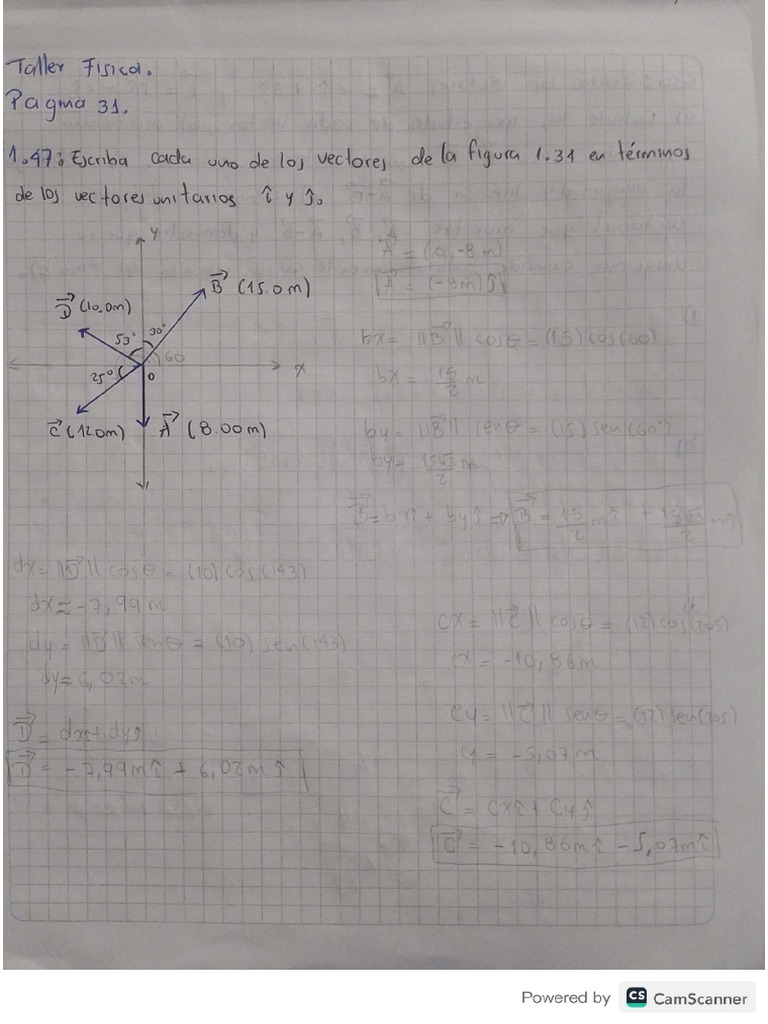 Taller Fisica.
Pagina 31.
1.47: Escriba cada uno de los vectores de la figura 1.31 en términos
de los vectores unitarios î y ĵ.
y
B⃗ (15.0m)
D⃗ (10.0m)
53° 30°
60
25°
0
x
C⃗ (12.0m)
A⃗ (8.00m)
A⃗ = (0, -8m)
A⃗ = (-8m)ĵ
bx = ||B⃗|| cosθ = (15) cos(60)
bx = 15/2 m
by = ||B⃗|| senθ = (15) sen(60°)
by = 15√3/2 m
B⃗ = bxî + byĵ => B⃗ = 15/2 mî + 15√3/2 mĵ
dx = ||D⃗|| cosθ = (10) cos(143)
dx = -7,99m
dy = ||D⃗|| senθ = (10) sen(143)
dy = 6,02m
D⃗ = dxî + dyĵ
D⃗ = -7,99mî + 6,02mĵ
cx = ||C⃗|| cosθ = (12) cos(205)
cx = -10,86m
cy = ||C⃗|| senθ = (12) sen(205)
cy = -5,07m
C⃗ = cxî + cyĵ
C⃗ = -10,86mî - 5,07mî
Powered by CS CamScanner